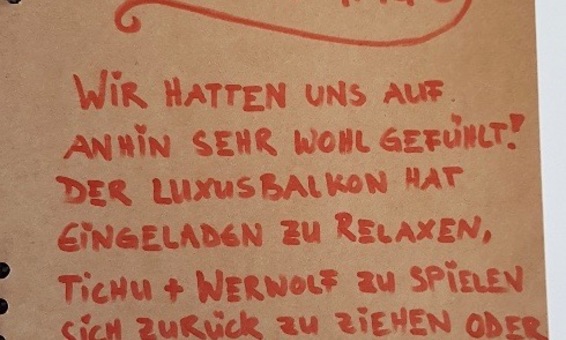 WIR HATTEN UNS AUF
ANHIN SEHR WOHL GEFÜHLT!
DER LUXUSBALKON HAT
EINGELADEN ZU RELAXEN,
TICHU + WERWOLF ZU SPIELEN
SICH ZURÜCK ZU ZIEHEN ODER